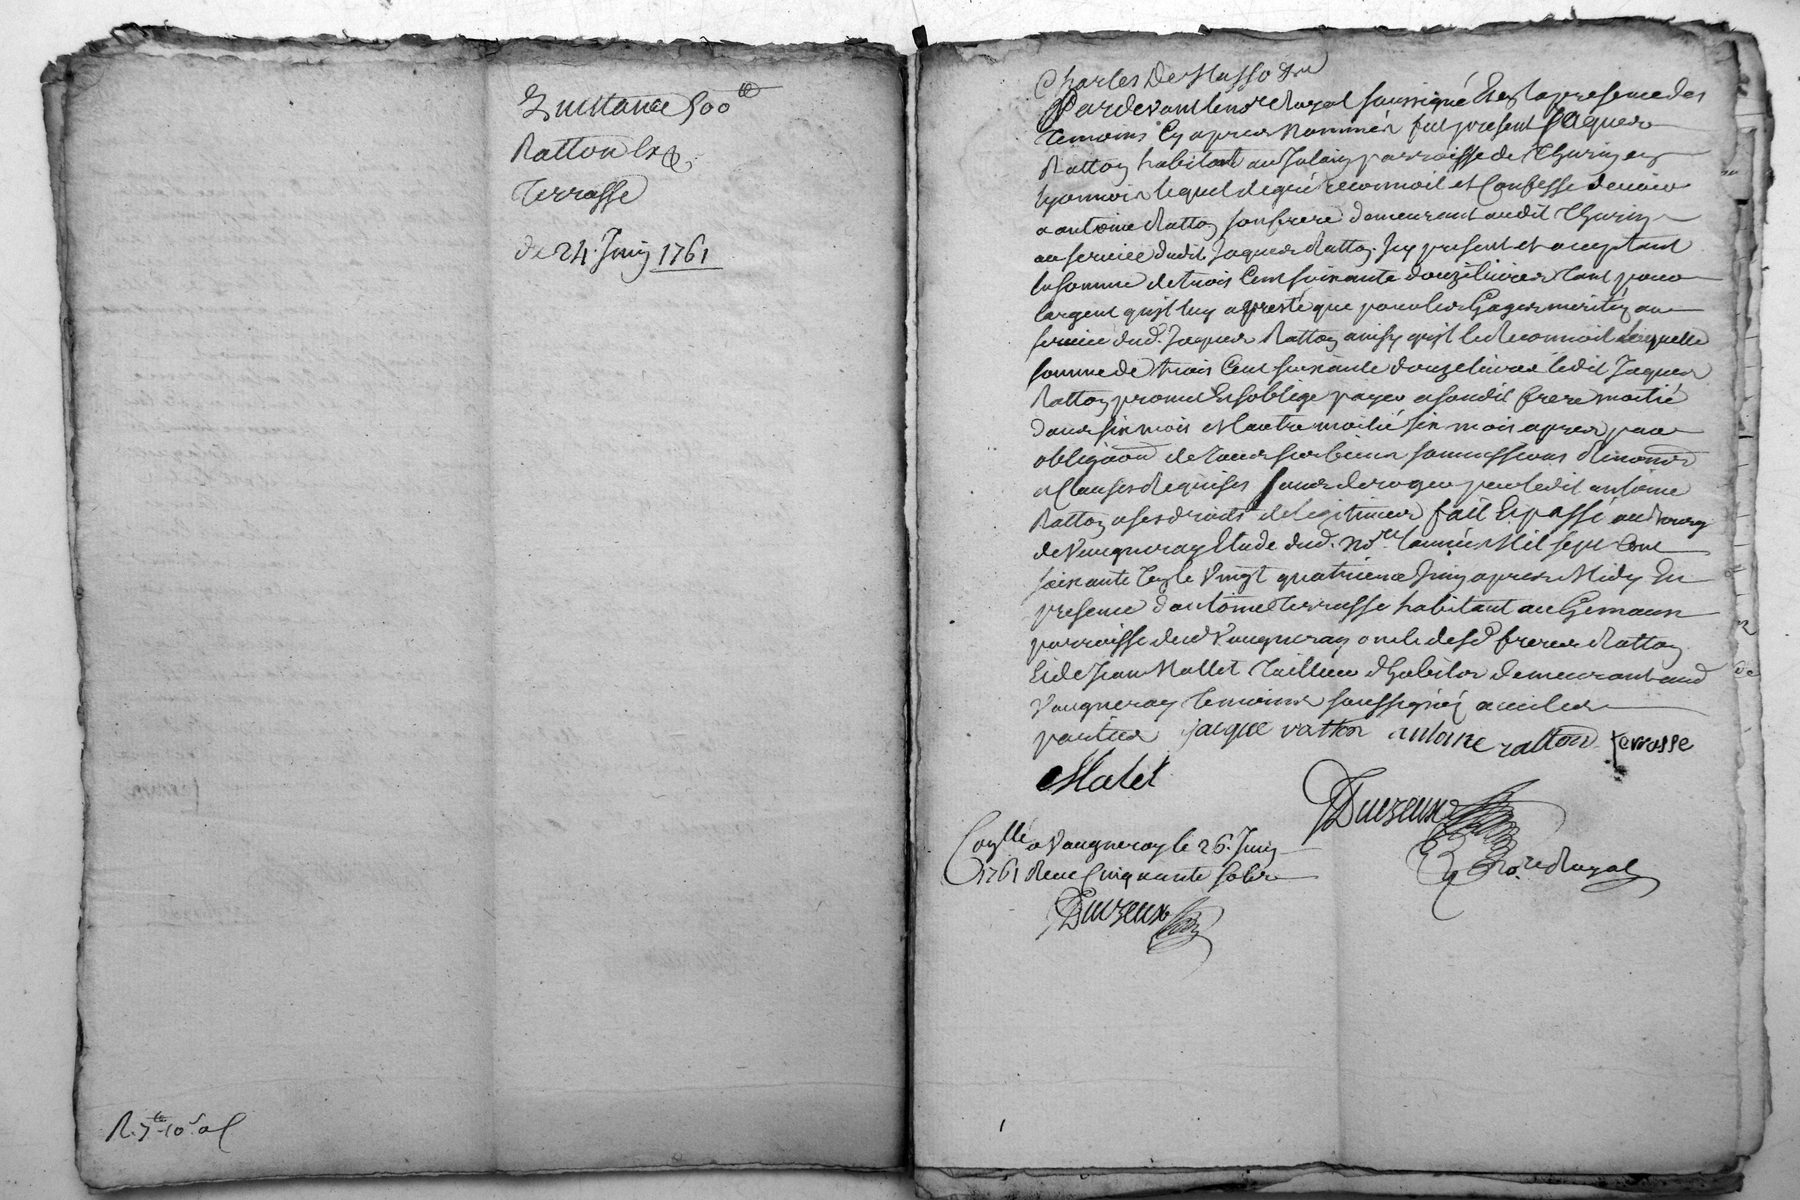 Quittance 500ᵗᵗ
Ratton &
Terrasse
du 24. Juin 1761
R. 7ᵗᵗ 10ˢ
Pardevant le noʳᵉ Royal soussigné Et en la presence des
temoins Cy apres Nommés fut present Jaques
Ratton habitant au parroisse de Thurin en
lyonnois lequel de gré reconnoit et Confesse devoir
a antoine Ratton son frere demeurant audit Thurin
au service dudit Jaques Ratton Icy present et acceptant
la somme de trois Cent soixante douze livres tant pour
largent quil luy a presté que pour les Gages merités au
service dud. Jaques Ratton ainsy quil le Reconnoit laquelle
somme de trois Cent soixante douze livres ledit Jaques
Ratton promet Et soblige payer a sondit frere moitié
dans six mois et lautre moitié six mois apres par
obligaōn de tous ses biens soumissions Renonōns
et Clauses Requises sans deroger par ledit antoine
Ratton a ses droits de legitimes fait Et passé au bourg
de Vaugneray Etude dud. noʳᵉ lannée Mil sept Cent
soixante Un le Vingt quatrieme Juin apres Midy En
presence dantoine Terrasse habitant au
parroisse dud Vaugneray oncle desd freres Ratton
Et de Jean Mallet Tailleur dhabits demeurant aud
Vaugneray temoins soussignés avec les
parties jacque ratton antoine ratton terrasse
Malet
Duvzeux
noʳᵉ Royal
Conˡˡé a Vaugneray le 26. Juin
1761 Reçu Cinquante sols
Duvzeux
1